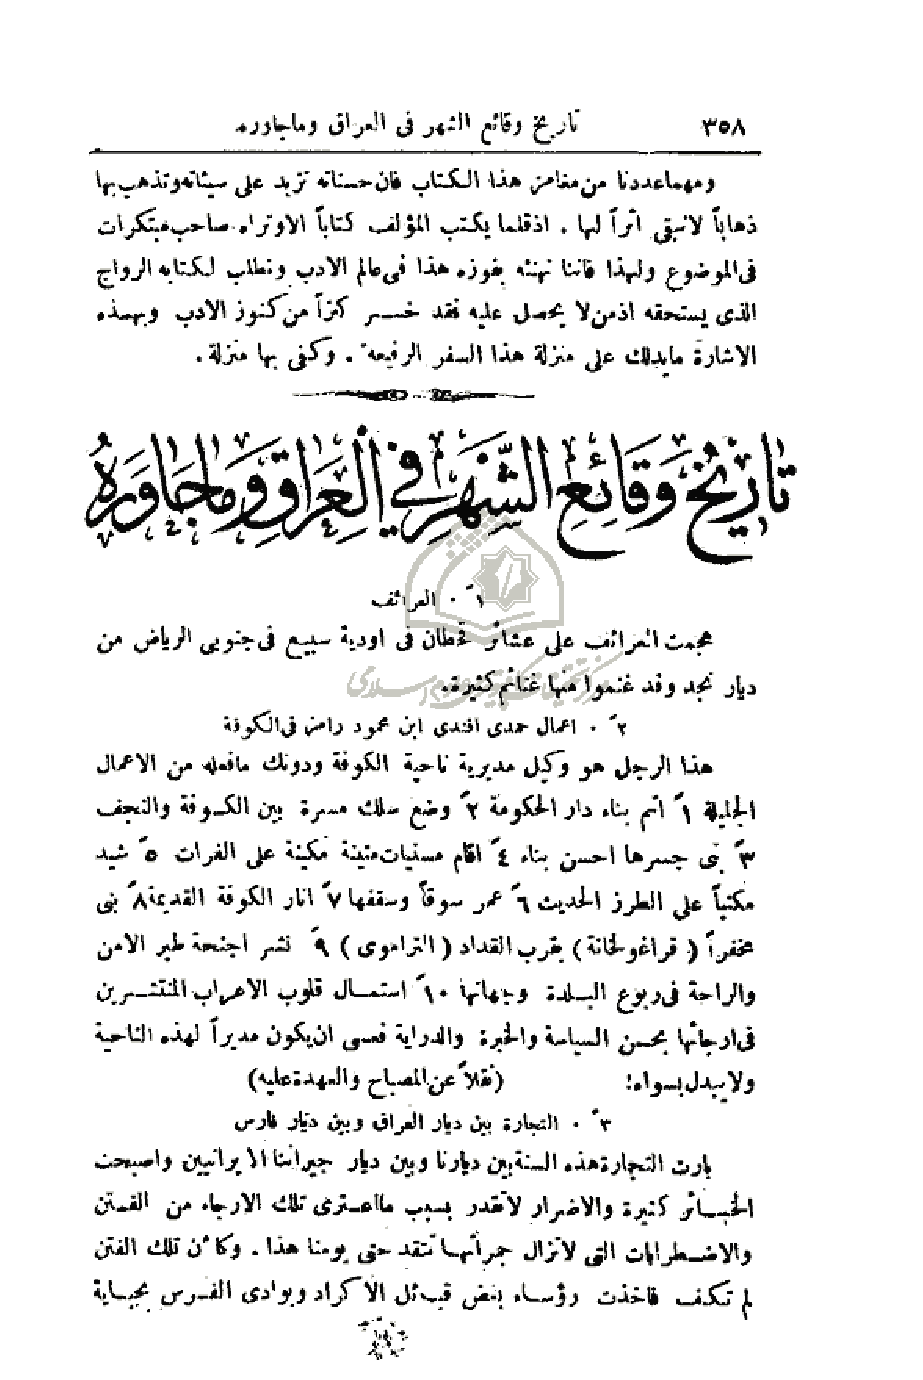 ٣٥٨ تاريخ وقائع الشهر فى العراق وماجاوره
ومهما عددنا من مغامز هذا الكتاب فان حسناته تزيد على سيئاته وتذهب بها
ذهاباً لاتبقى اثراً لها . اذ قلما يكتب المؤلف كتاباً الا وتراه صاحب مبتكرات
فى الموضوع ولهذا فاننا نهنئه بفوزه هذا فى عالم الادب ونطلب لكتابه الرواج
الذى يستحقه اذ من لا يحصل عليه فقد خسر كنزاً من كنوز الادب وبهذه
الاشارة مايدلك على منزلة هذا السفر الرفيعة . وكفى بها منزلة .
تاريخ وقائع الشهر في العراق وماجاوره
١ً . الغرائف
هجمت الغرائف على عشائر قحطان فى اودية سبيع فى جنوبى الرياض من
ديار نجد وقد غنموا منها غنائم كثيرة .
مركز تحقيقات كامپيوتري علوم اسلامي
٢ً . اعمال حمدى افندى ابن محمود رامز فى الكوفة
هذا الرجل هو وكيل مديرية ناحية الكوفة ودونك مافعله من الاعمال
الجليلة ١ً اتم بناء دار الحكومة ٢ً وضع سلك مسرة بين الكوفة والنجف
٣ً بنى جسرها احسن بناء ٤ً اقام مسنيات متينة مكينة على الفرات ٥ً شيد
مكتباً على الطرز الحديث ٦ً عمر سوقاً وسقفها ٧ً انار الكوفة القديمة ٨ً بنى
مخفراً ( قراغولخانة ) بقرب القداد ( التراموى ) ٩ً نشر اجنحة طير الامن
والراحة فى ربوع البلدة وجهاتها ١٠ً استمال قلوب الاعراب المنتشرين
فى ارجائها بحسن السياسة والخبرة والدراية فعسى ان يكون مديراً لهذه الناحية
ولا يبدل بسواه ! (نقلاً عن المصباح والعهدة عليه)
٣ً . التجارة بين ديار العراق وبين ديار فارس
بارت التجارة هذه السنة بين ديارنا وبين ديار جيراننا الايرانيين واصبحت
الخسائر كثيرة والاضرار لاتقدر بسبب مااعترى تلك الارجاء من الفتن
والاضطرابات التى لاتزال جمراتها تتقد حتى يومنا هذا . وكأن تلك الفتن
لم تكف فاخذت رؤساء بعض قبائل الاكراد وبوادى الفرس بجباية